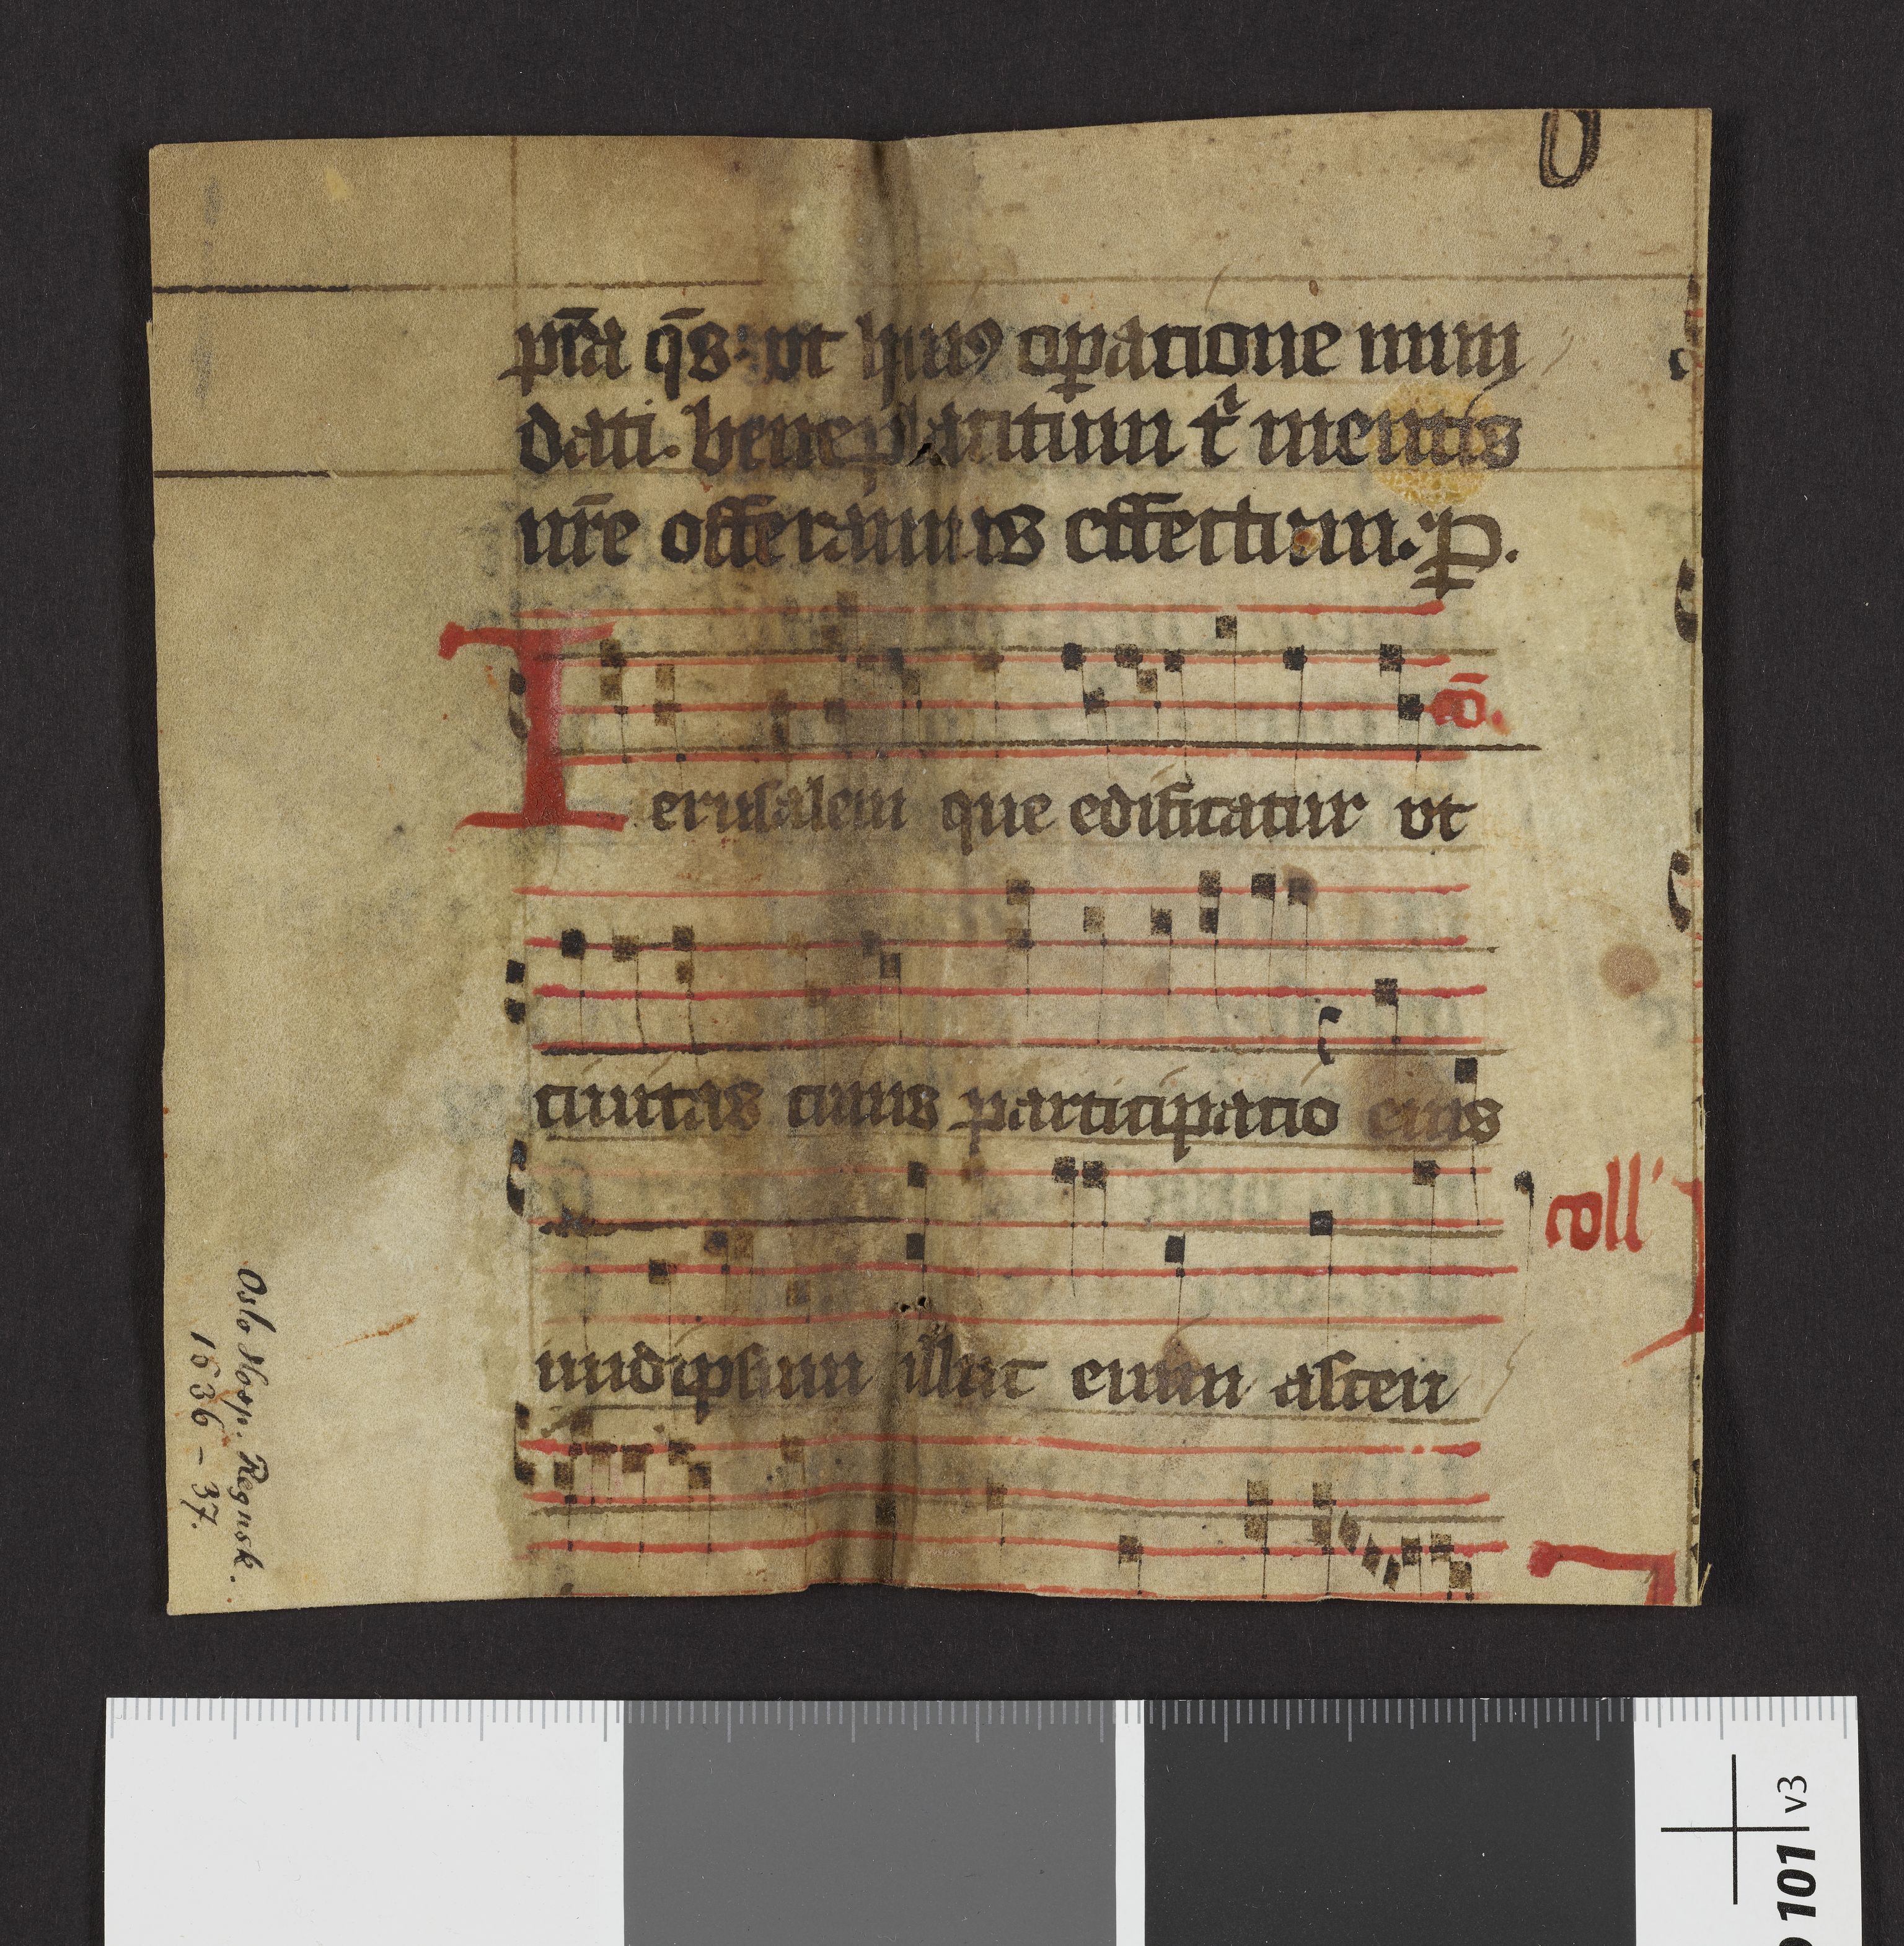 p̄ra q̄s: ut huiꝯ oꝑatione mun
dati. beneplacitum t̄ mentis
nr̄e offeramus effectum. ꝑ.
cō.
Ierusalem que edificatur ut
ciuitas cuius participatio eius
inidipsum illuc enim ascen
coll'
Oslo Hosp. Regnsk.
1636 – 37.
101 v3